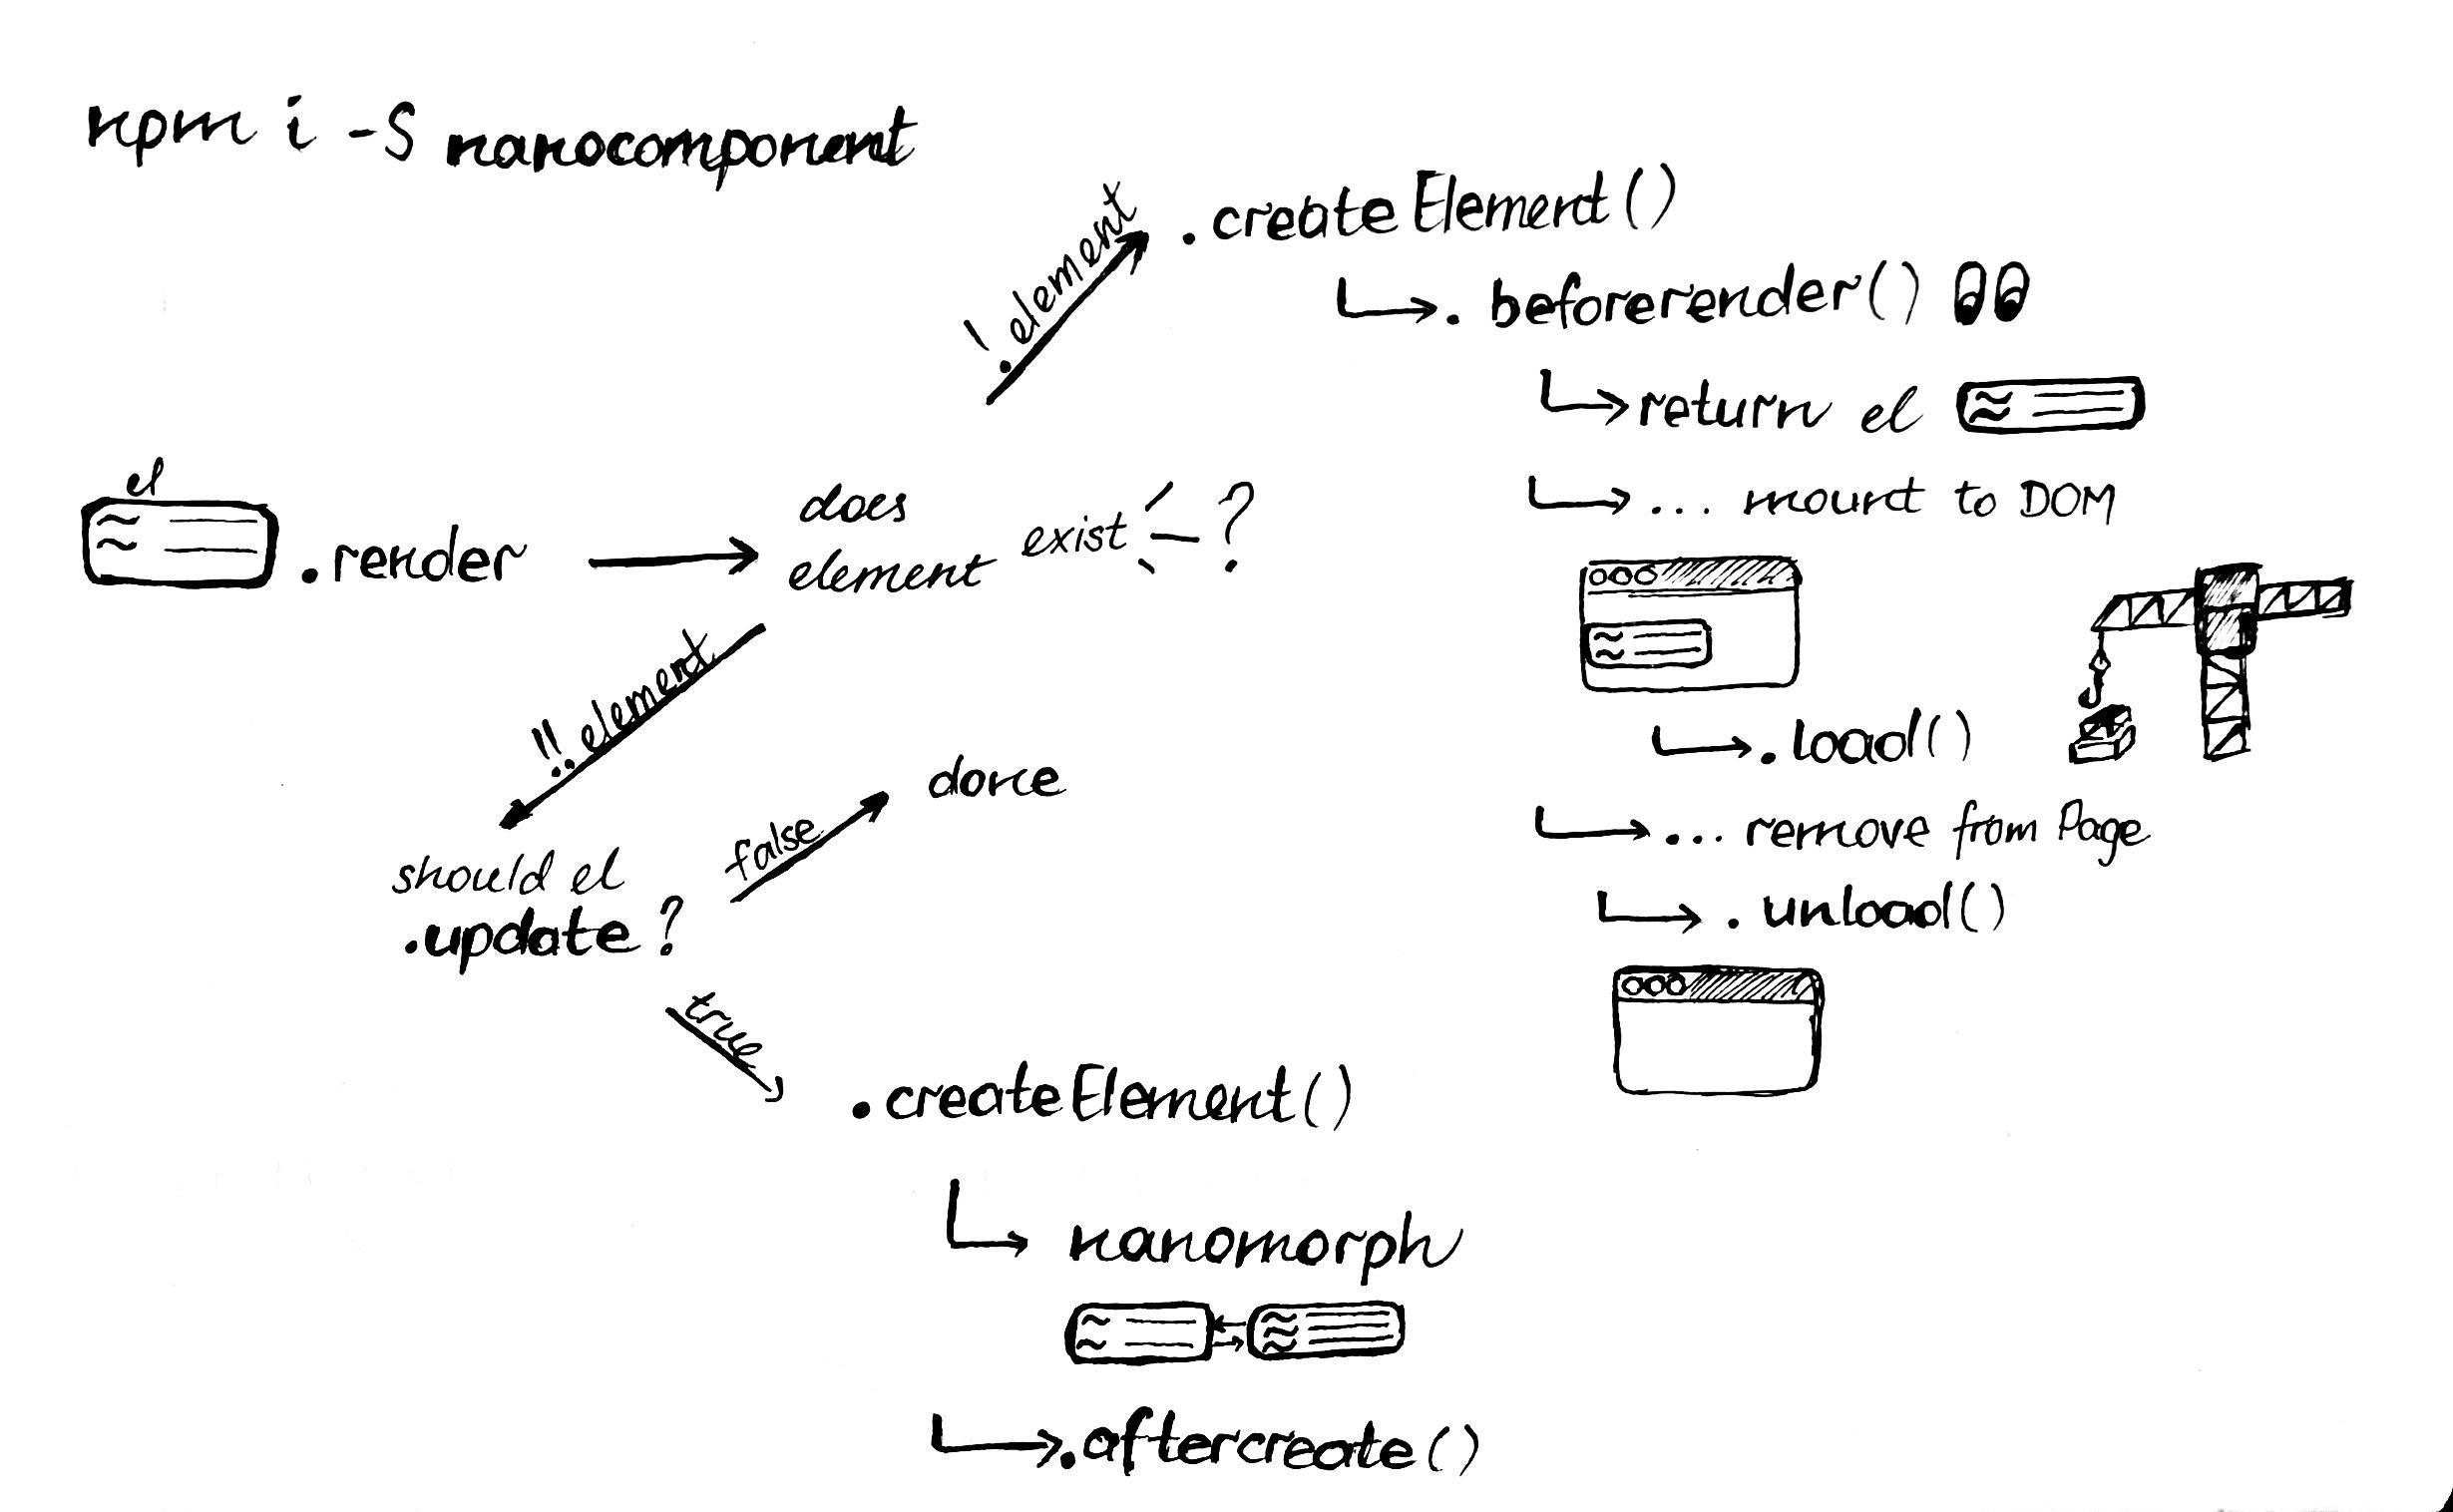 npm i -S nanocomponent
!element
.createElement()
.beforerender()
return el
... mount to DOM
el
.render
does
element exist ?
!!element
should el
.update?
false
done
true
.createElement()
nanomorph
.aftercreate()
.load()
... remove from Page
.unload()